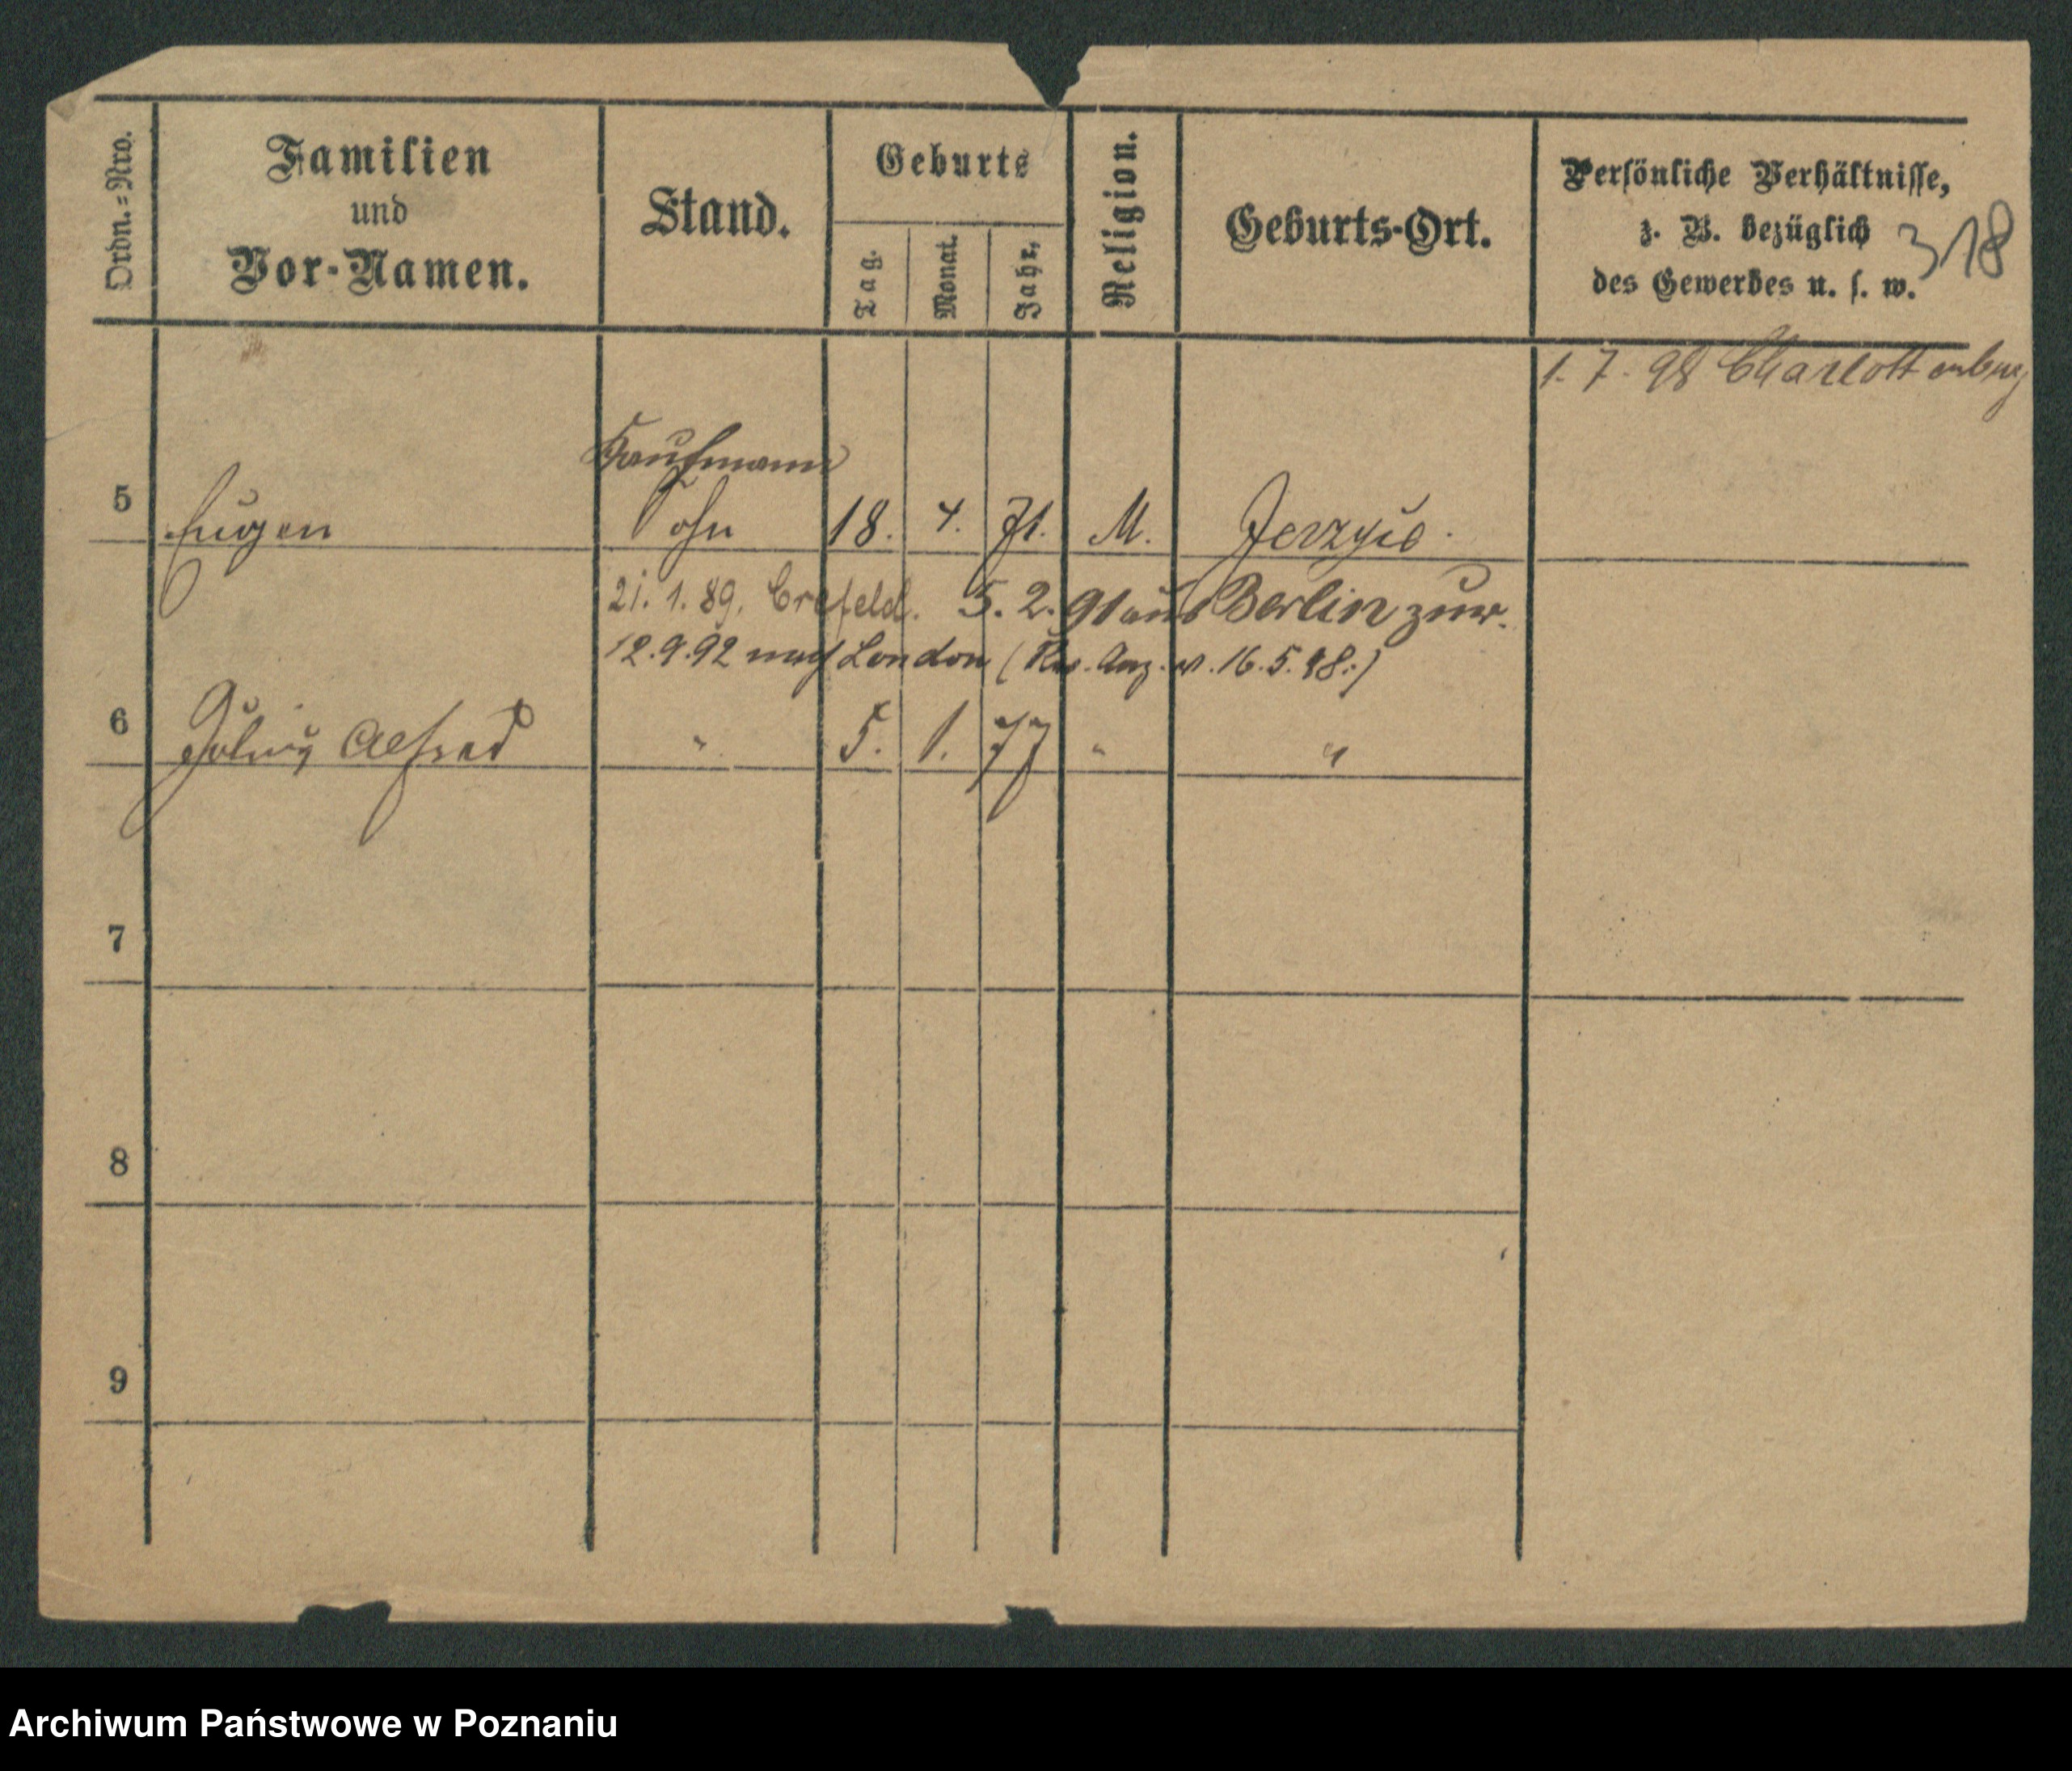 Ordn.-Nro.
Familien
und
Vor-Namen.
Stand.
Geburts
Tag.
Monat.
Jahr.
Religion.
Geburts-Ort.
Persönliche Verhältnisse,
z. B. bezüglich
des Gewerbes u. s. w.
318
1. 7. 98 Charlottenburg
Kaufmann
5 Eugen Sohn 18. 4. 71. M. Jerzyce.
21. 1. 89. Crefeld. 5. 2. 91 aus Berlin zur.
12. 9. 92 nach London ( Anz. v. 16. 5. 98.)
6 Alfred " 5. 1. 77 " "
7
8
9
Archiwum Państwowe w Poznaniu